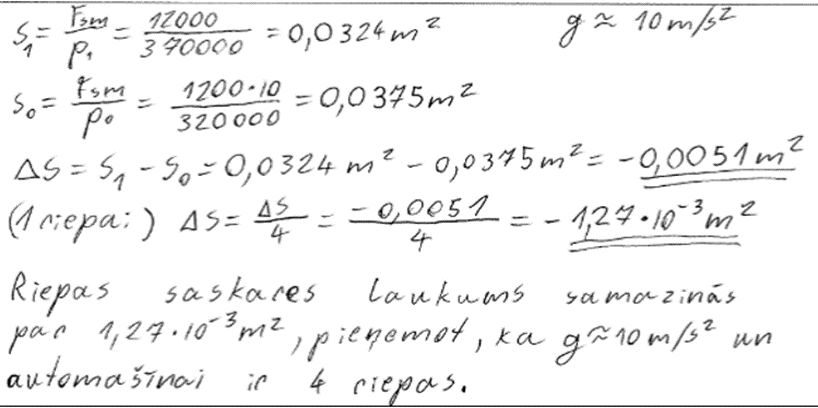 S₁ = Fsm/p₁ = 12000/370000 = 0,0324 m² g ≈ 10 m/s²
S₀ = Fsm/p₀ = 1200·10/320000 = 0,0375 m²
ΔS = S₁ - S₀ = 0,0324 m² - 0,0375 m² = -0,0051 m²
(1 riepai) ΔS = ΔS/4 = -0,0051/4 = -1,27·10⁻³ m²
Riepas saskares laukums samazinās
par 1,27·10⁻³ m², pieņemot, ka g ≈ 10 m/s² un
automašīnai ir 4 riepas.